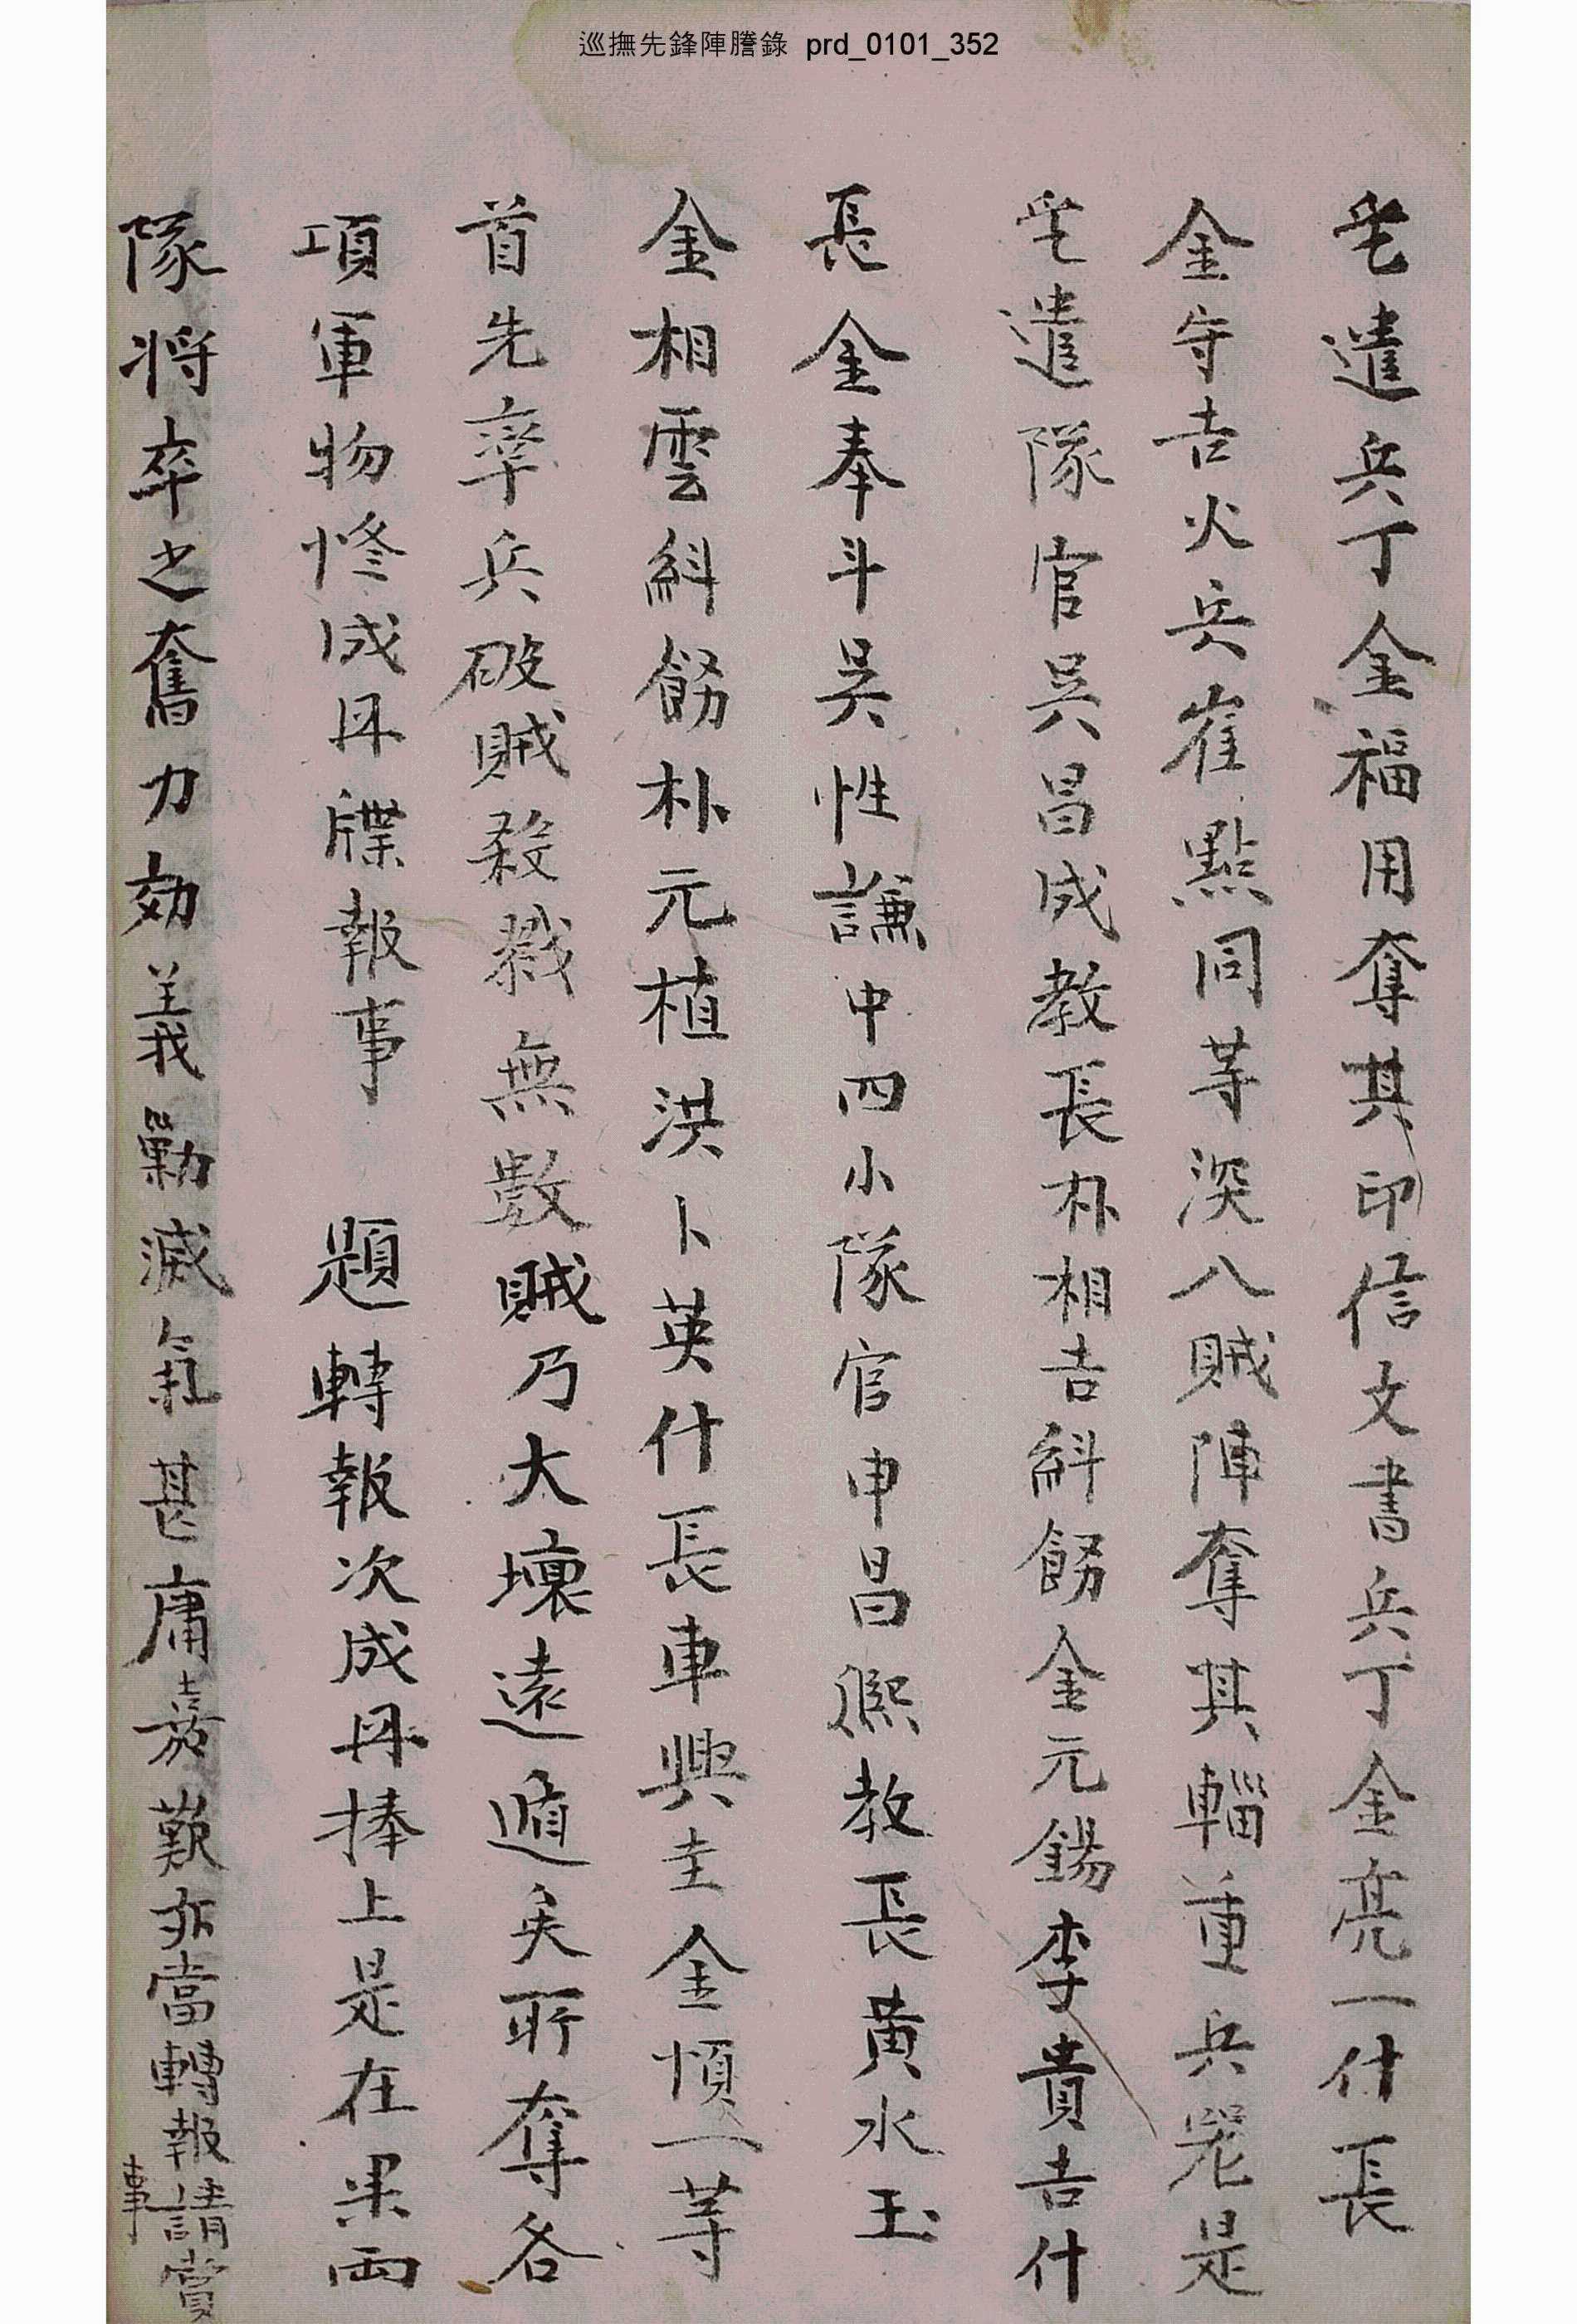 巡撫先鋒陣謄錄 prd_0101_352
旀遣兵丁金福用奪其印信文書兵丁金亮一什長
金守吉火兵崔點同等深入賊陣奪其輜重兵器是
旀遣隊官吳昌成教長朴相吉糾飭金元錫李貴吉什
長金奉斗吳性謙中四小隊官申昌熙教長黃水玉
金相雲糾飭朴元植洪卜英什長車興圭金順一等
首先率兵破賊殺戮無數賊乃大壞遠遁矣所奪各
項軍物修成冊牒報事 題轉報次成冊捧上是在果兩
隊將卒之奮力効義勦滅氣甚庸嘉歎亦當轉報請賞
事